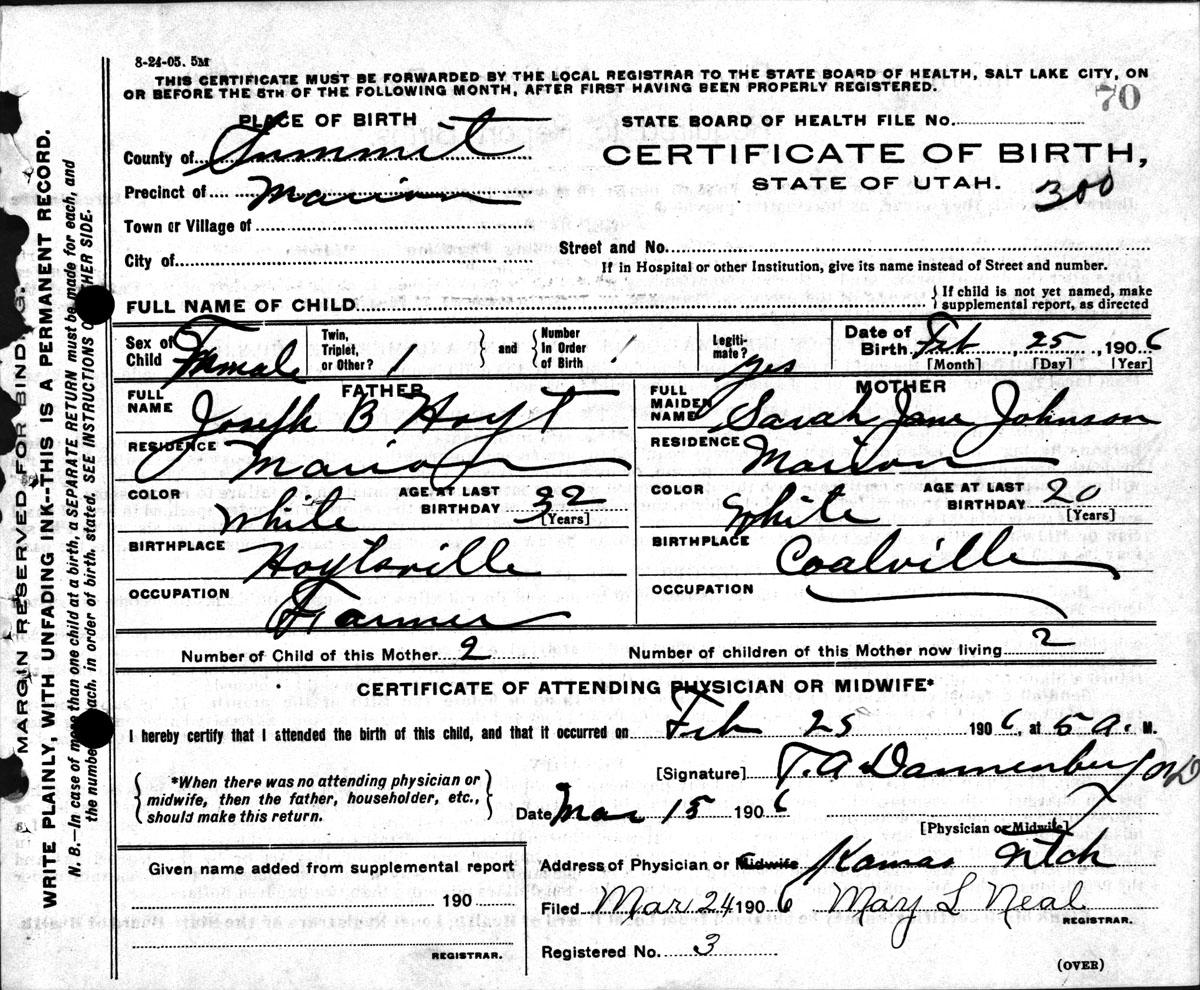 8-24-05. 5M
THIS CERTIFICATE MUST BE FORWARDED BY THE LOCAL REGISTRAR TO THE STATE BOARD OF HEALTH, SALT LAKE CITY, ON
OR BEFORE THE 5TH OF THE FOLLOWING MONTH, AFTER FIRST HAVING BEEN PROPERLY REGISTERED.
70
PLACE OF BIRTH
STATE BOARD OF HEALTH FILE No.
County of Summit
CERTIFICATE OF BIRTH,
Precinct of Marion
STATE OF UTAH.
300
Town or Village of
City of
Street and No.
If in Hospital or other Institution, give its name instead of Street and number.
FULL NAME OF CHILD
{ If child is not yet named, make
supplemental report, as directed
Sex of Child Female
Twin, Triplet, or Other? } and { Number In Order of Birth
Legitimate? yes
Date of Birth Feb, 25, 1906
[Month] [Day] [Year]
FATHER
FULL NAME Joseph B Hoyt
RESIDENCE Marion
COLOR White AGE AT LAST BIRTHDAY 32 [Years]
BIRTHPLACE Hoytsville
OCCUPATION Farmer
MOTHER
FULL MAIDEN NAME Sarah Jane Johnson
RESIDENCE Marion
COLOR White AGE AT LAST BIRTHDAY 20 [Years]
BIRTHPLACE Coalville
OCCUPATION
Number of Child of this Mother 2
Number of children of this Mother now living 2
CERTIFICATE OF ATTENDING PHYSICIAN OR MIDWIFE*
I hereby certify that I attended the birth of this child, and that it occurred on Feb 25 1906, at 5 a. M.
{ *When there was no attending physician or
midwife, then the father, householder, etc.,
should make this return. }
[Signature] T. A Dannenberg MD
Date Mar 15 1906
[Physician or Midwife]
Address of Physician or Midwife Kamas Utah
Filed Mar 24 1906 Mary L Neal
REGISTRAR.
Registered No. 3
Given name added from supplemental report
190
REGISTRAR.
(OVER)
MARGIN RESERVED FOR BINDING.
WRITE PLAINLY, WITH UNFADING INK--THIS IS A PERMANENT RECORD.
N. B.—In case of more than one child at a birth, a SEPARATE RETURN must be made for each, and
the number each. in order of birth. stated. SEE INSTRUCTIONS OTHER SIDE.